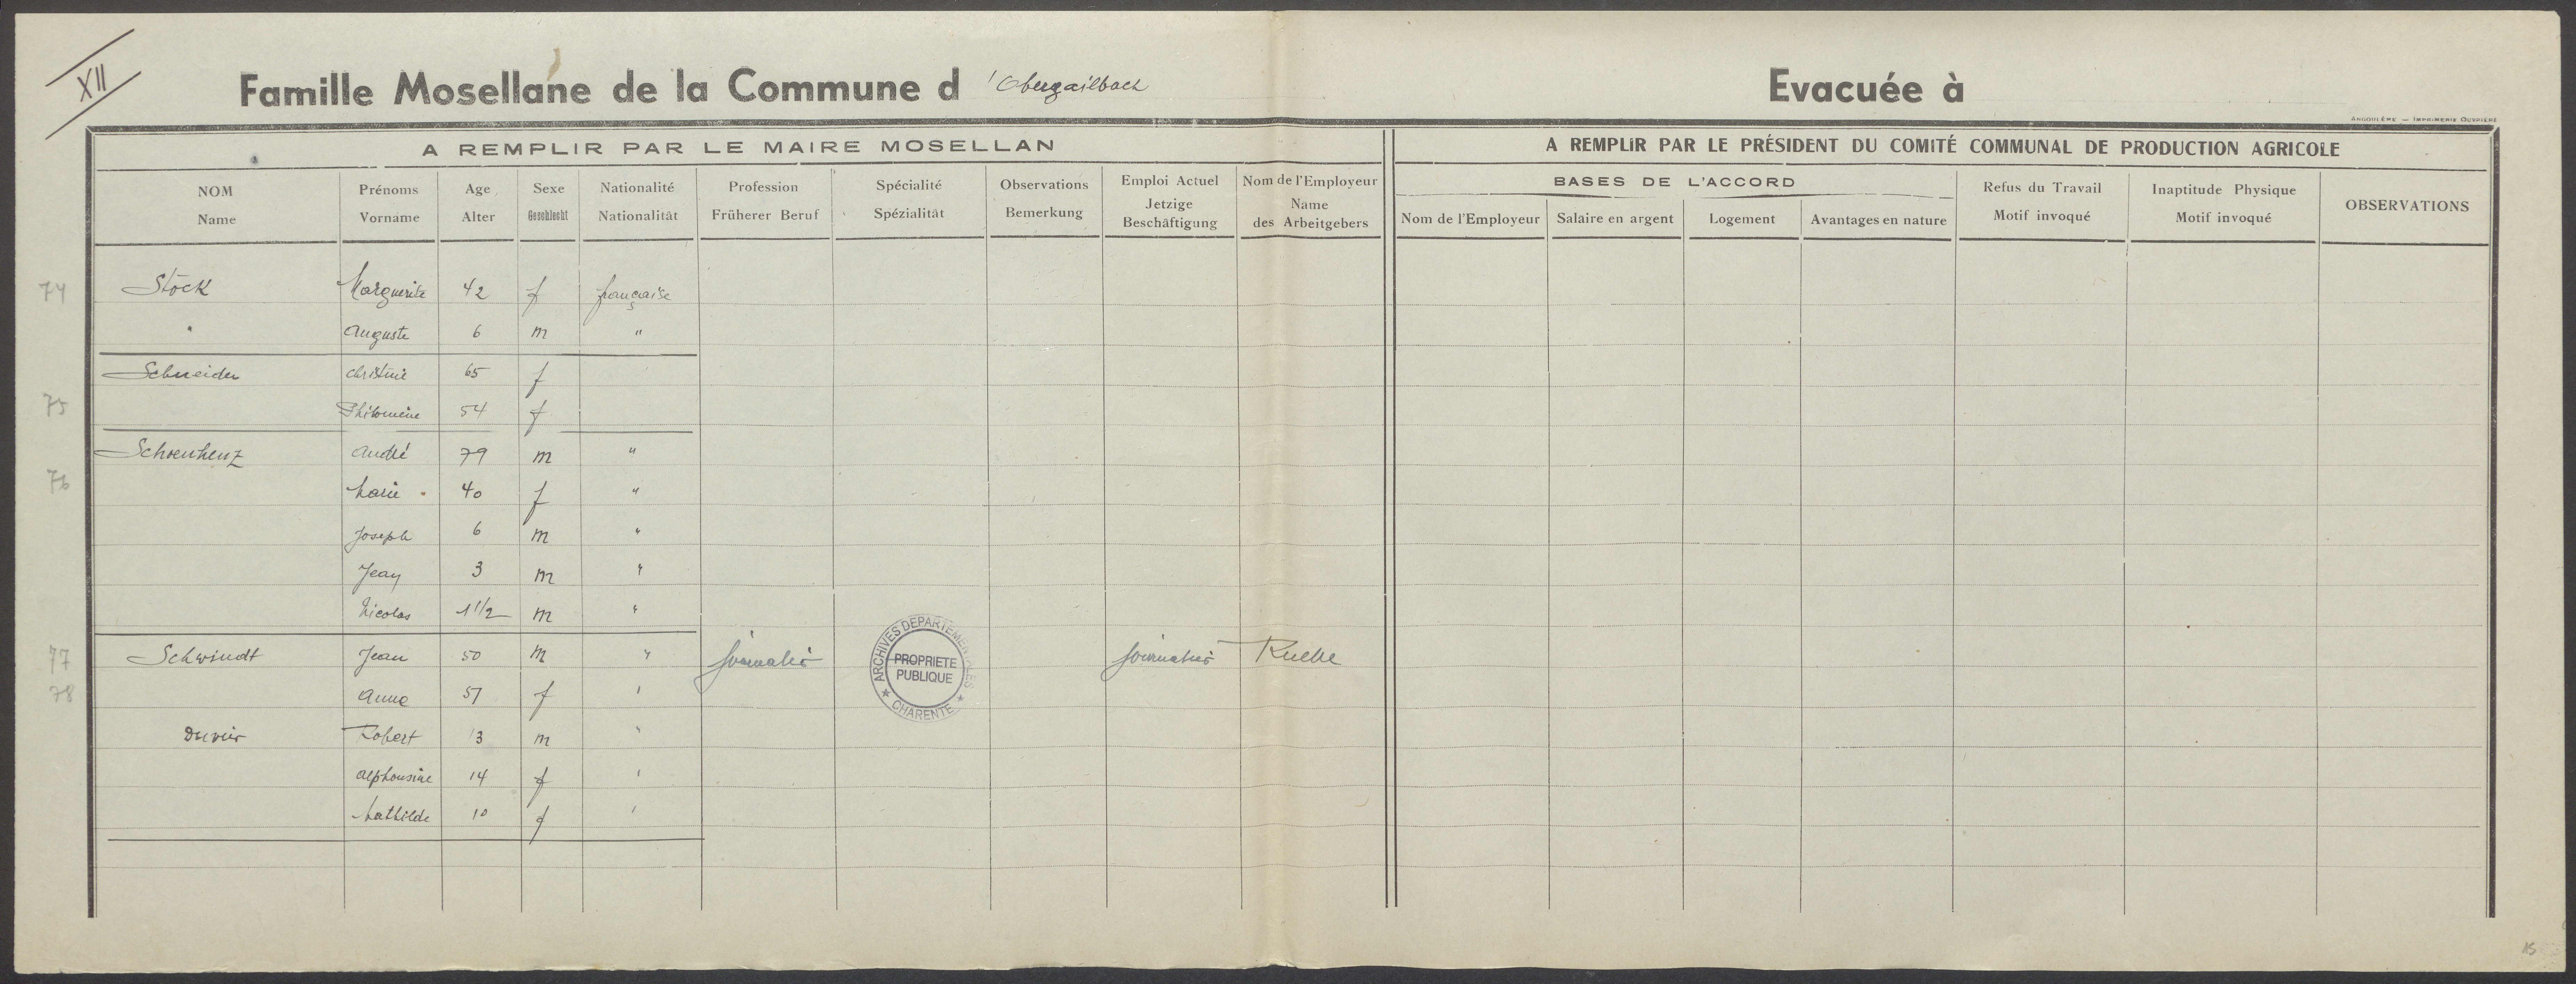 XII
Famille Mosellane de la Commune d 'Obergailbach
Evacuée à
ANGOULÊME — IMPRIMERIE OUVRIÈRE
A REMPLIR PAR LE MAIRE MOSELLAN
A REMPLIR PAR LE PRÉSIDENT DU COMITÉ COMMUNAL DE PRODUCTION AGRICOLE
NOM Name
Prénoms Vorname
Age Alter
Sexe Geschlecht
Nationalité Nationalität
Profession Früherer Beruf
Spécialité Spézialität
Observations Bemerkung
Emploi Actuel Jetzige Beschäftigung
Nom de l'Employeur Name des Arbeitgebers
BASES DE L'ACCORD
Nom de l'Employeur
Salaire en argent
Logement
Avantages en nature
Refus du Travail Motif invoqué
Inaptitude Physique Motif invoqué
OBSERVATIONS
74 Stock Marguerite 42 f française
" Auguste 6 m "
Schneider christine 65 f
75 Philomène 54 f
Schoenhenz André 79 m "
76 Marie 40 f "
Joseph 6 m "
Jean 3 m "
Nicolas 1 1/2 m "
77 Schwindt Jean 50 m " journalier journalier Ruelle
78 Anna 51 f "
Robert 13 m "
Alphonsine 14 f "
Mathilde 10 f "
ARCHIVES DEPARTEMENTALES
PROPRIETE
PUBLIQUE
CHARENTE
15